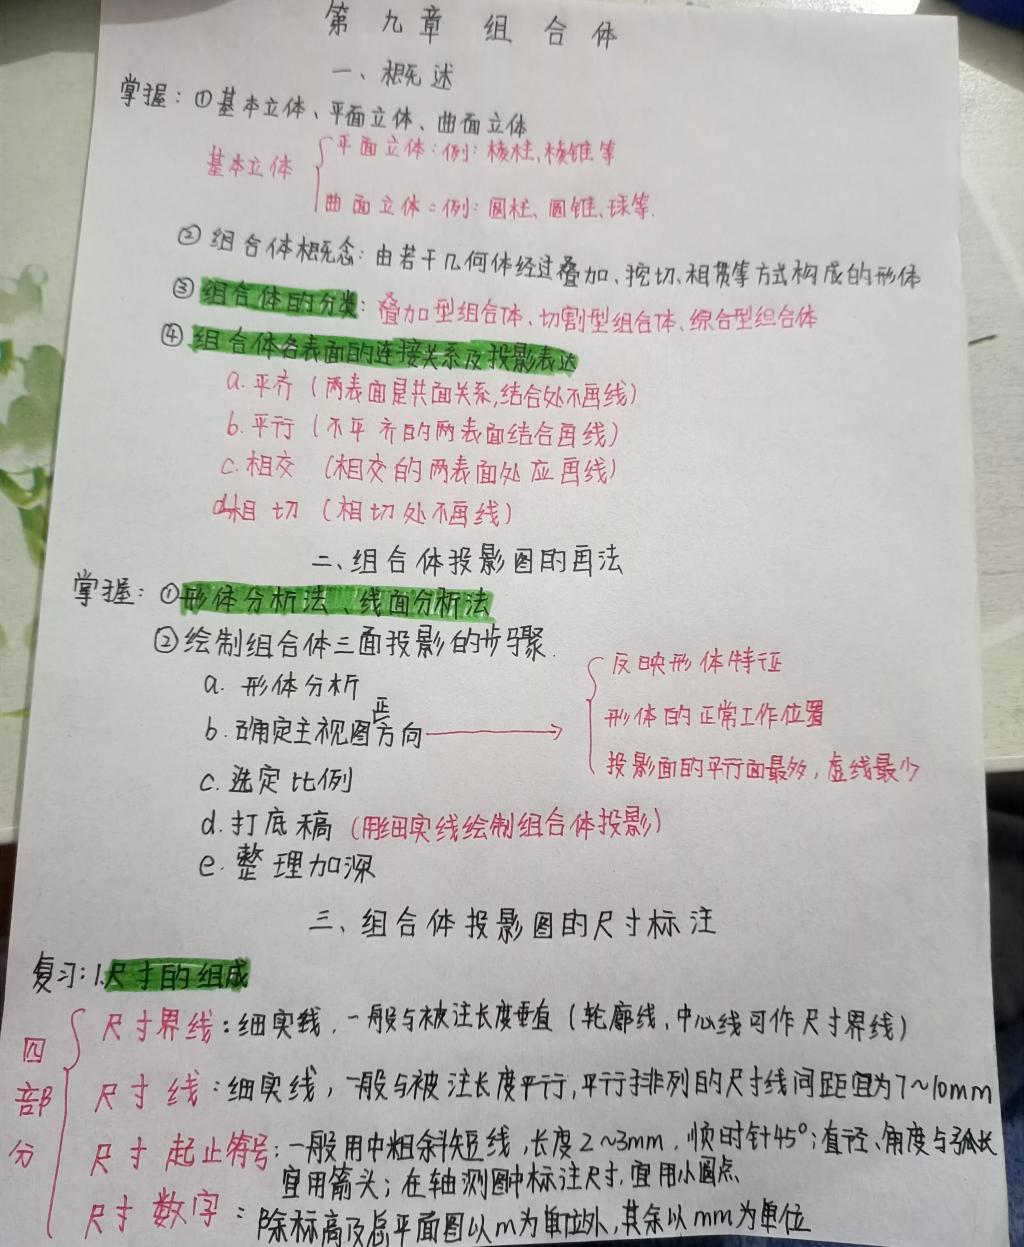 第九章 组合体
一、概述
掌握：①基本立体、平面立体、曲面立体
平面立体：例：棱柱、棱锥等
基本立体
曲面立体：例：圆柱、圆锥、球等.
②组合体概念：由若干几何体经过叠加、挖切、相贯等方式构成的形体
③组合体的分类：叠加型组合体、切割型组合体、综合型组合体
④组合体各表面的连接关系及投影表达
a.平齐（两表面是共面关系,结合处不画线）
b.平行（不平齐的两表面结合画线）
c.相交（相交的两表面处应画线）
d.相切（相切处不画线）
二、组合体投影图的画法
掌握：①形体分析法、线面分析法
②绘制组合体三面投影的步骤.
反映形体特征
a.形体分析
形体的正常工作位置
b.确定主视图正方向
投影面的平行面最多，虚线最少
c.选定比例
d.打底稿（用细实线绘制组合体投影）
e.整理加深
三、组合体投影图的尺寸标注
复习：1.尺寸的组成
四部分
尺寸界线：细实线，一般与被注长度垂直（轮廓线、中心线可作尺寸界线）
尺寸线：细实线，一般与被注长度平行，平行于排列的尺寸线间距宜为7~10mm
尺寸起止符号：一般用中粗斜短线，长度2~3mm，顺时针45°；直径、角度与弧长
宜用箭头；在轴测图中标注尺寸，宜用小圆点
尺寸数字：除标高及总平面图以m为单位外，其余以mm为单位